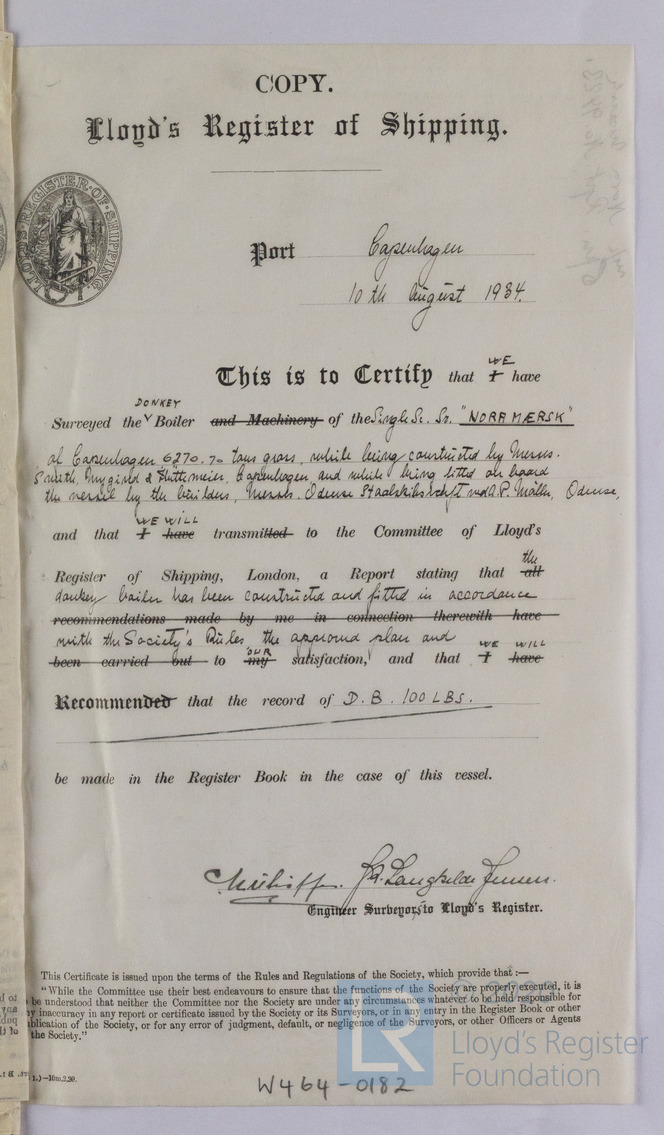 COPY.
Lloyd's Register of Shipping.
LLOYD'S REGISTER OF SHIPPING.
Port Copenhagen
10th August 1934.
WE
This is to Certify that I have
DONKEY
Surveyed the Boiler and Machinery of the Single Sc. Sr. "NORA MÆRSK"
of Copenhagen 6270.70 tons gross, while being constructed by Messrs.
Smith, Mygind & Hüttemeier, Copenhagen and while being fitted on board
the vessel by the builders, Messrs. Odense Staalskibsværft ved A.P. Möller, Odense,
WE WILL
and that I have transmitted to the Committee of Lloyd's
the
Register of Shipping, London, a Report stating that all
donkey boiler has been constructed and fitted in accordance
recommendations made by me in connection therewith have
with the Society's Rules the approved plan and
OUR WE WILL
been carried out to my satisfaction, and that I have
Recommended that the record of D.B. 100 LBS.
be made in the Register Book in the case of this vessel.
Langkilde Jensen.
Engineer Surveyors to Lloyd's Register.
This Certificate is issued upon the terms of the Rules and Regulations of the Society, which provide that :—
"While the Committee use their best endeavours to ensure that the functions of the Society are properly executed, it is
be understood that neither the Committee nor the Society are under any circumstances whatever to be held responsible for
inaccuracy in any report or certificate issued by the Society or its Surveyors, or in any entry in the Register Book or other
blication of the Society, or for any error of judgment, default, or negligence of the Surveyors, or other Officers or Agents
the Society."
© 2021
LR Lloyd's Register
Foundation
W464-0182